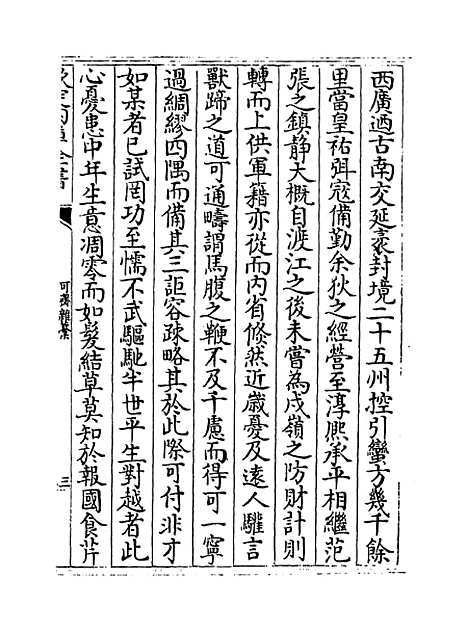 西廣迺古南交延袤封境二十五州控引蠻方幾千餘
里當皇祐弭寇備勤余狄之經營至淳熈承平相繼范
張之鎮靜大概自渡江之後未嘗為戍嶺之防財計則
轉而上供軍籍亦從而内省倐然近嵗憂及逺人驩言
獸蹄之道可通疇謂馬腹之鞭不及千慮而得可一寧
過綢繆四隅而備其三詎容疎略其於此際可付非才
如某者已試罔功至懦不武驅馳半世平生對越者此
心憂患中年生意凋零而如髮結草莫知於報國食芹
欽定四庫全書
可齋雜藁
三